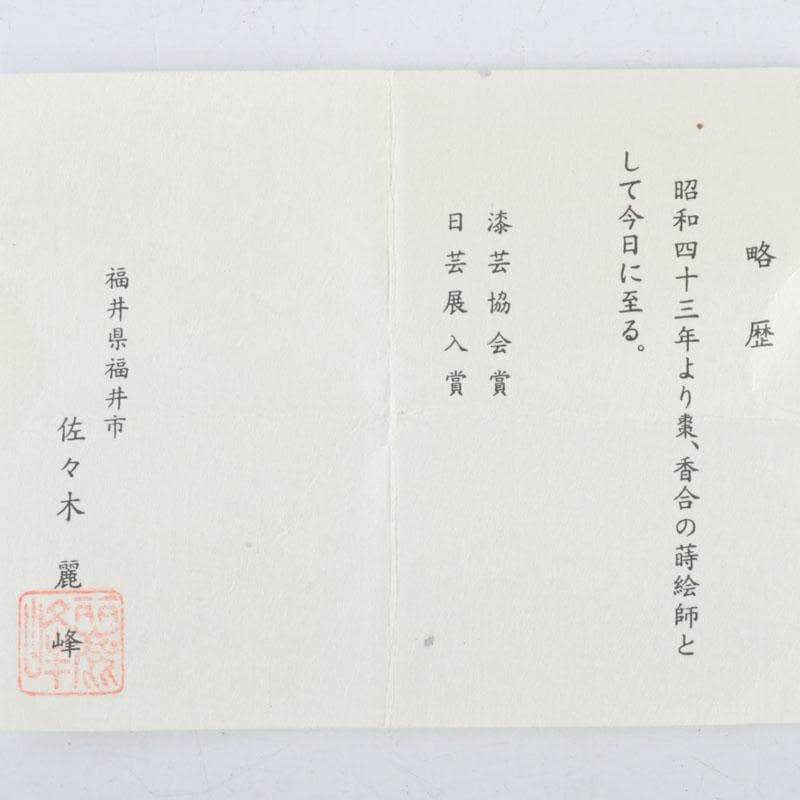 略歴
昭和四十三年より棗、香合の蒔絵師と
して今日に至る。
漆芸協会賞
日芸展入賞
福井県福井市
佐々木 麗峰
麗峰